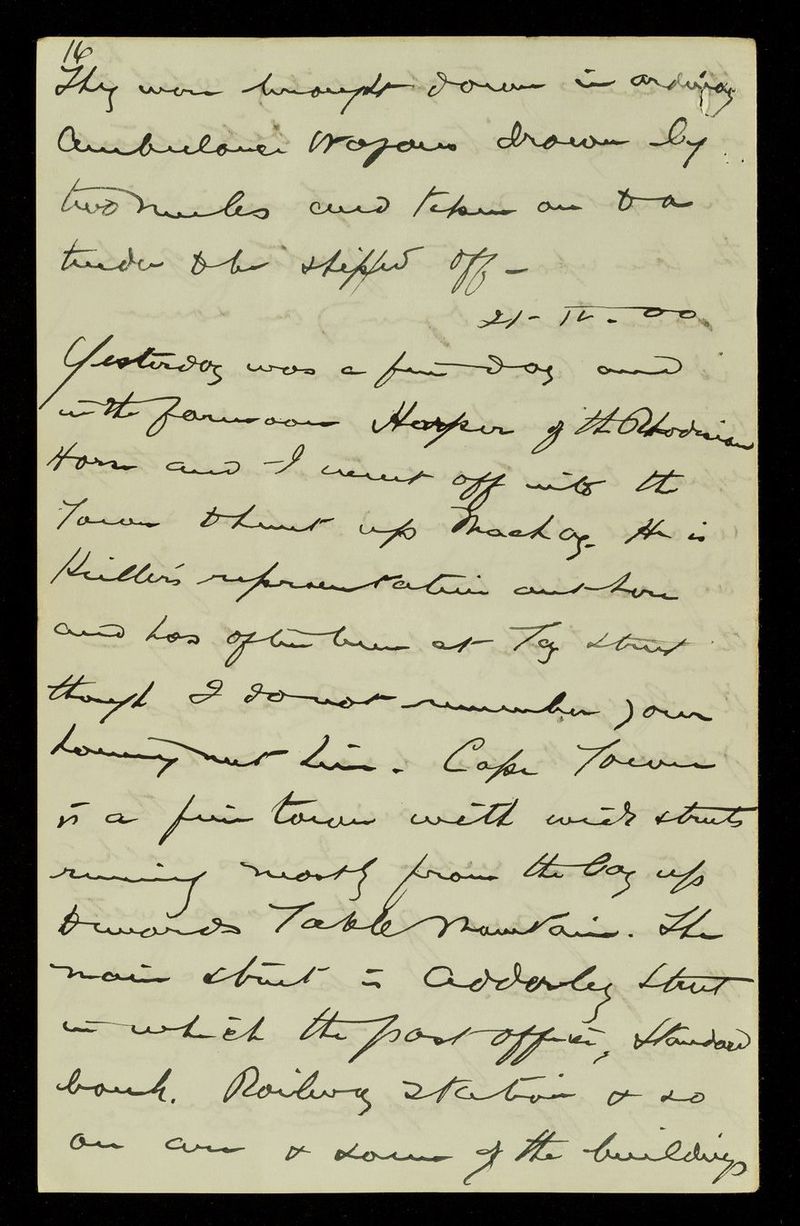 16
They were brought down in ordinary
Ambulance Wagons drawn by
two mules and taken on to a
tender to be shipped off -
21 - IV - 00
Yesterday was a fine day and
in the forenoon Harper of the Rhodesian
Horse and I went off into the
Town to hunt up Mackay. He is
Keiller's representative out here
and has often been at Tay Street
though I do not remember your
having met him. Cape Town
is a fine town with wide streets
running mostly from the bay up
towards Table Mountain. The
main street is Adderley Street
in which the post office, Standard
bank, Railway Station & so
on are & some of the buildings